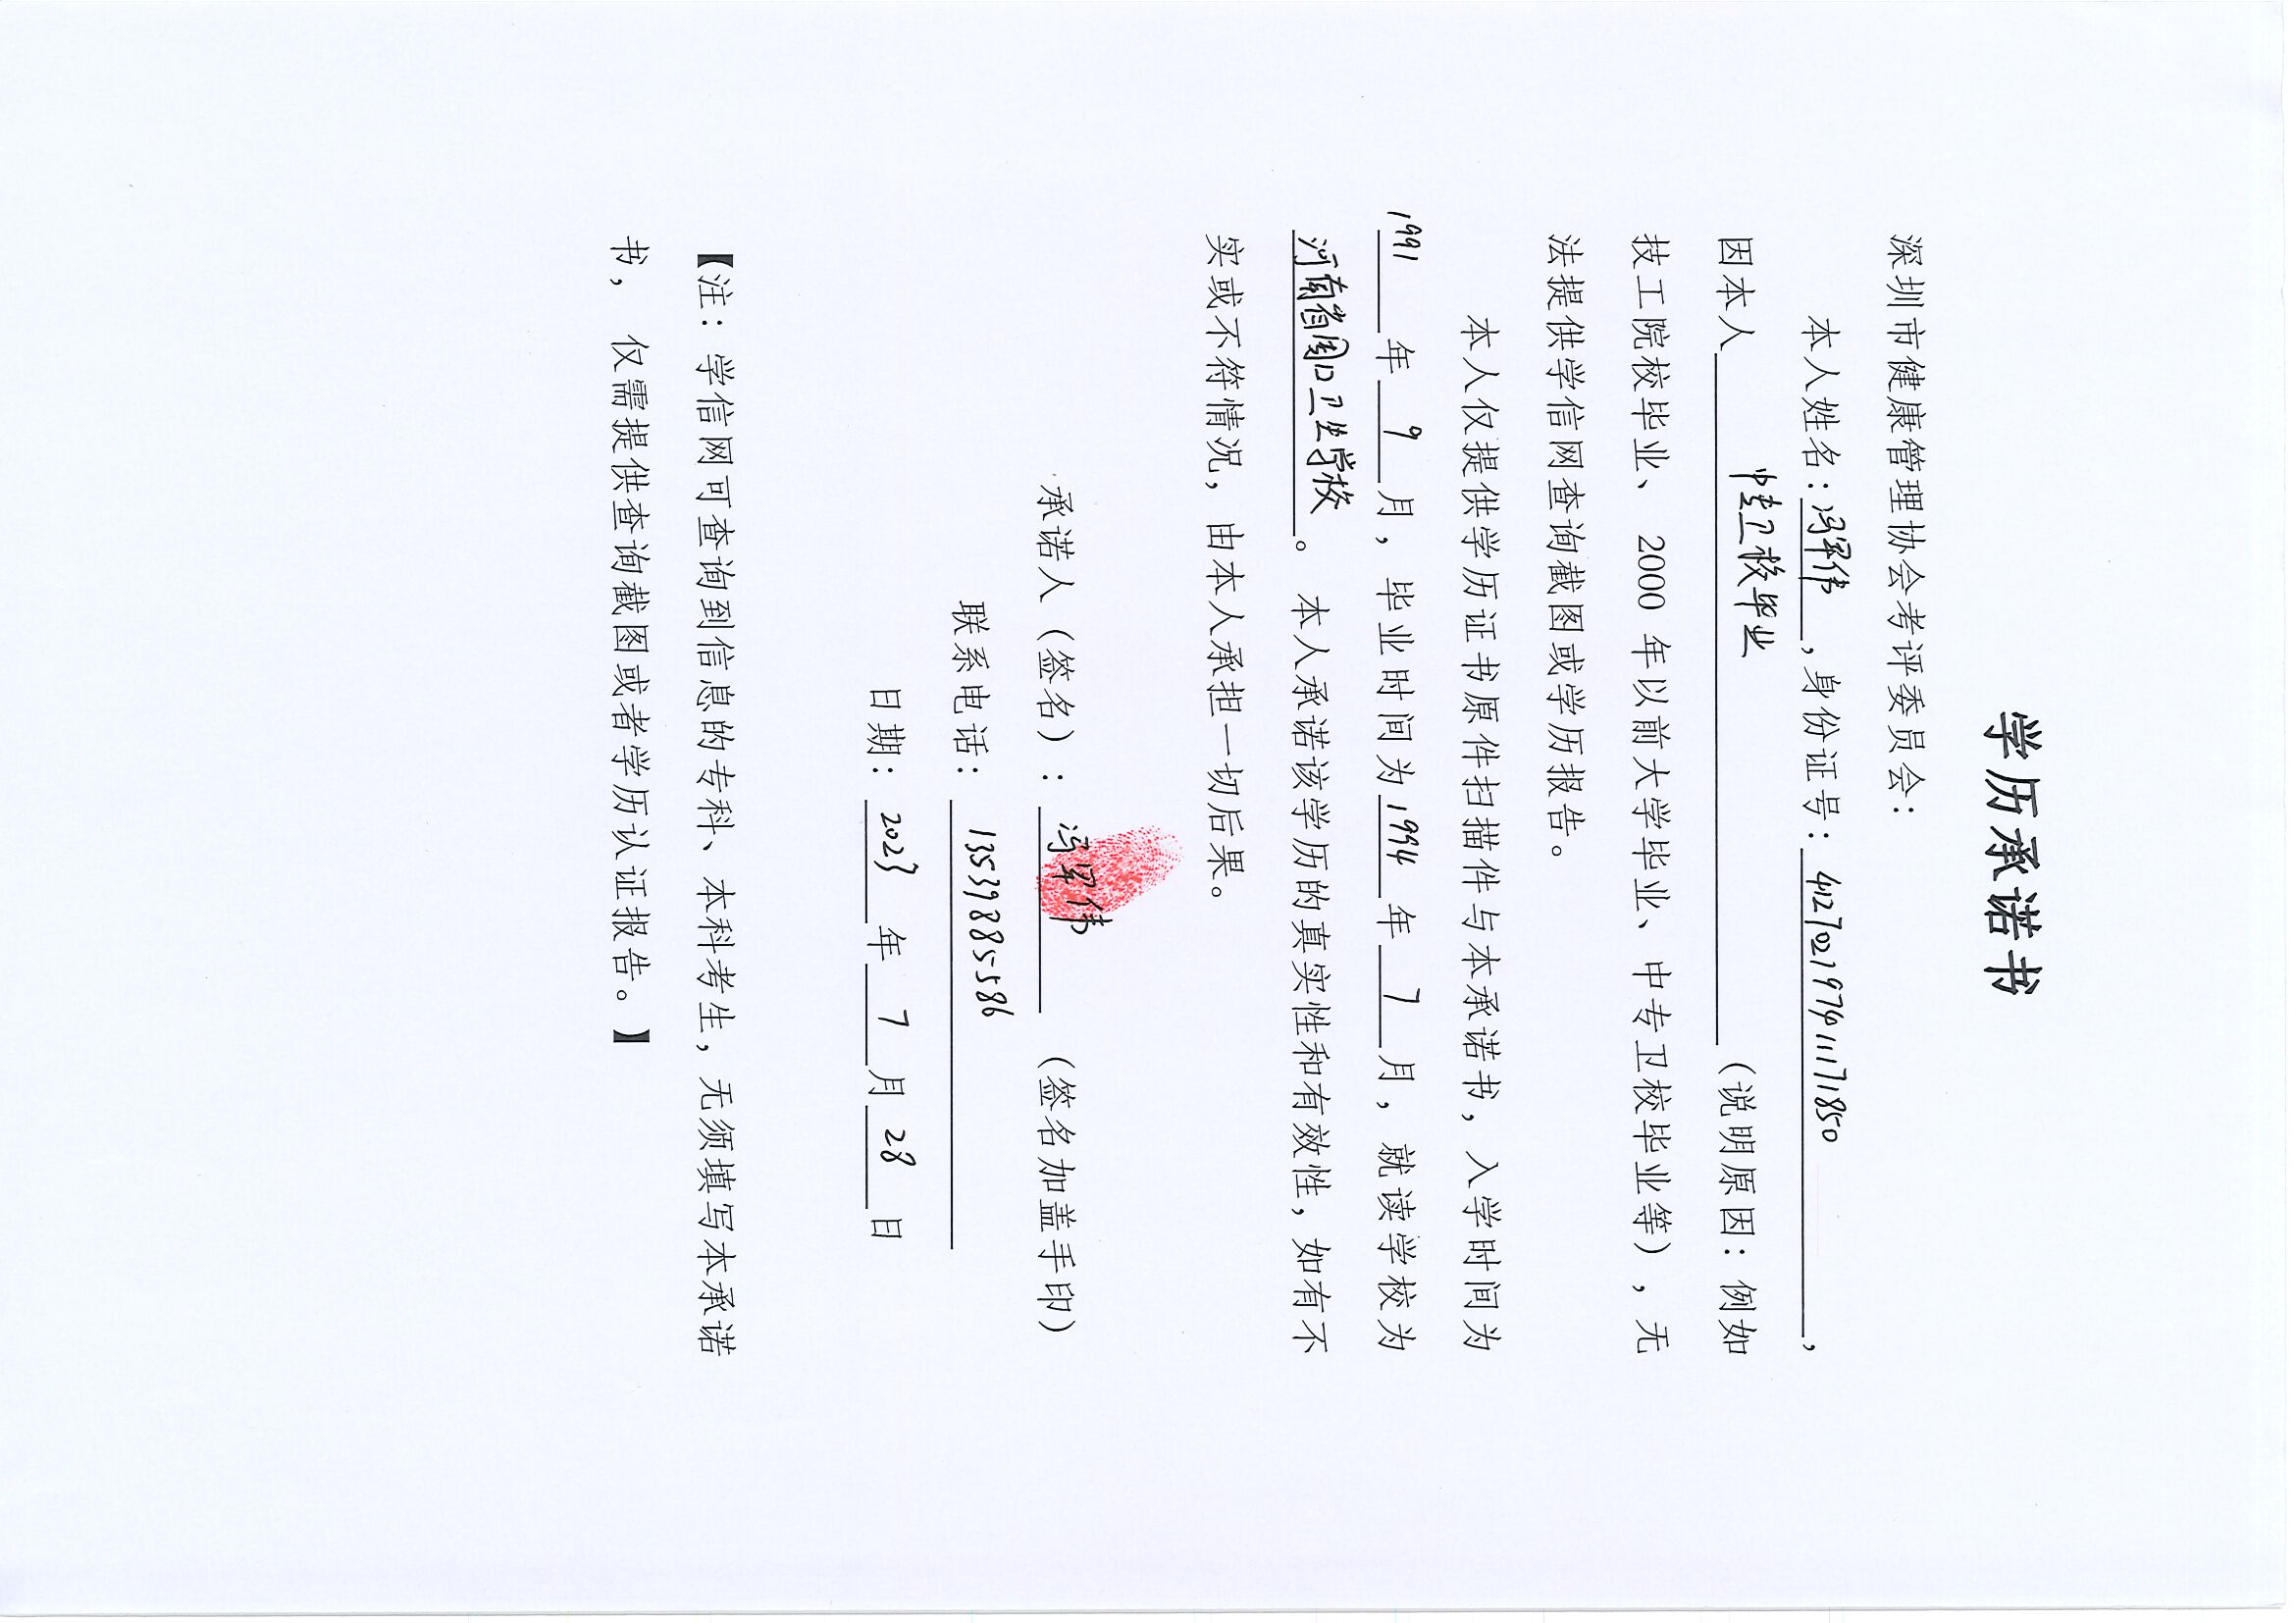 学历承诺书
深圳市健康管理协会考评委员会：
本人姓名：冯军伟，身份证号：412702197411171850，
因本人 中专卫校毕业 （说明原因：例如
技工院校毕业、2000 年以前大学毕业、中专卫校毕业等），无
法提供学信网查询截图或学历报告。
本人仅提供学历证书原件扫描件与本承诺书，入学时间为
1991 年 9 月，毕业时间为 1994 年 7 月，就读学校为
河南省周口卫生学校。本人承诺该学历的真实性和有效性，如有不
实或不符情况，由本人承担一切后果。
承诺人（签名）：冯军伟（签名加盖手印）
联系电话：13539885586
日期：2023 年 7 月 28 日
【注：学信网可查询到信息的专科、本科考生，无须填写本承诺
书，仅需提供查询截图或者学历认证报告。】